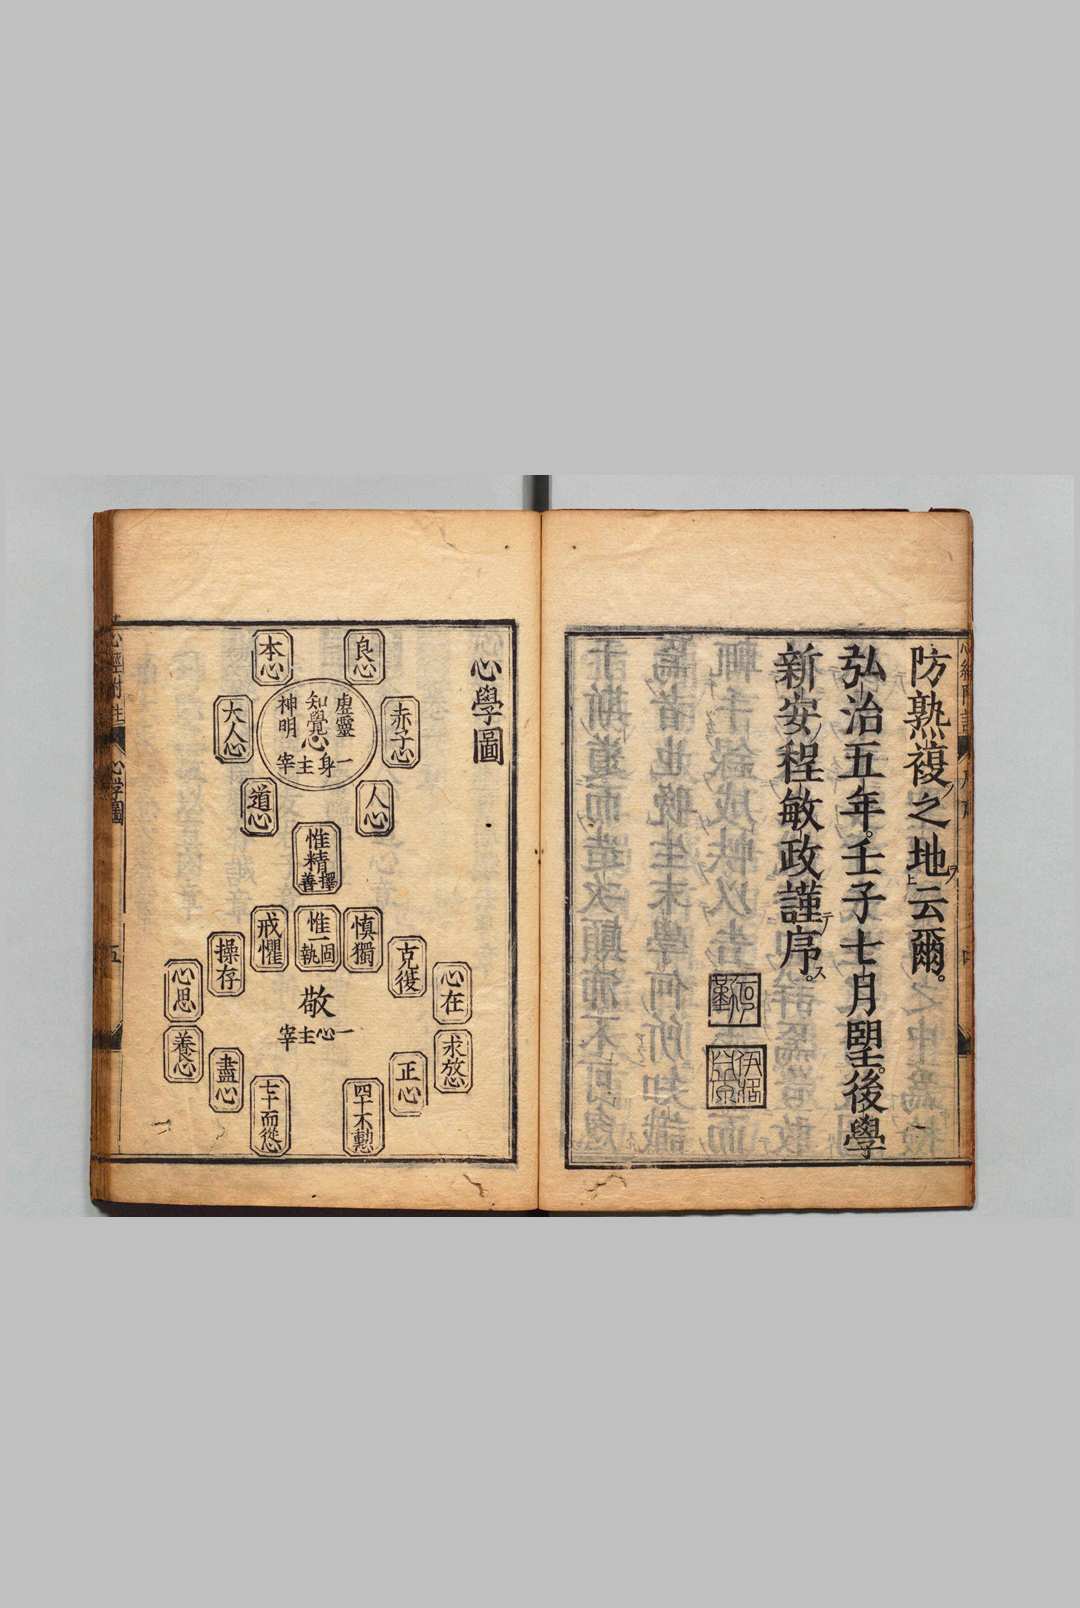 防熟複之地云爾。
弘治五年。壬子七月朢。後學
新安程敏政謹序。
心學圖
良心
本心
赤子心
大人心
虛靈
知覺
神明
心
一身主宰
人心
道心
惟精
擇善
慎獨
惟一
固執
戒懼
克復
操存
敬
一心主宰
心在
心思
求放心
養心
正心
盡心
四十不動心
七十而從心
心經附註
心学圖
五